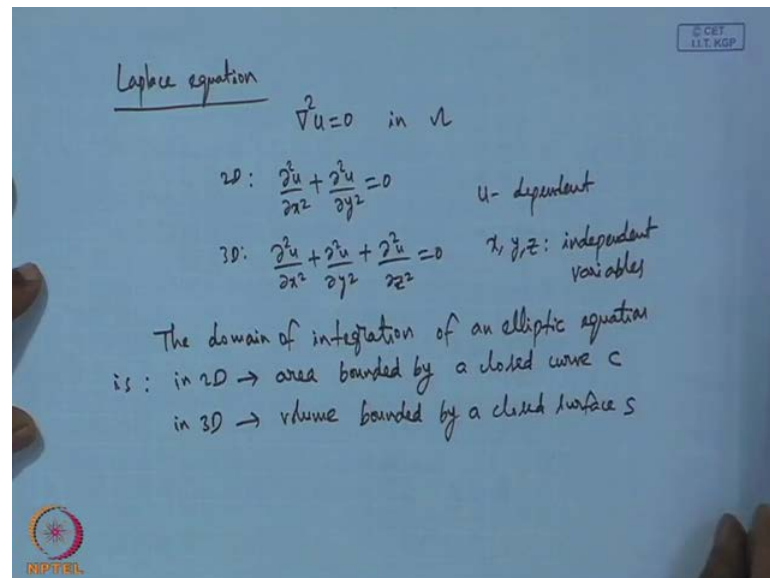 © CET
I.I.T. KGP
Laplace equation
∇²u=0 in Ω
2D: ∂²u/∂x² + ∂²u/∂y² =0
u- dependent
3D: ∂²u/∂x² + ∂²u/∂y² + ∂²u/∂z² =0
x, y, z: independent
variables
The domain of integration of an elliptic equation
is: in 2D → area bounded by a closed curve C
in 3D → volume bounded by a closed surface S
NPTEL